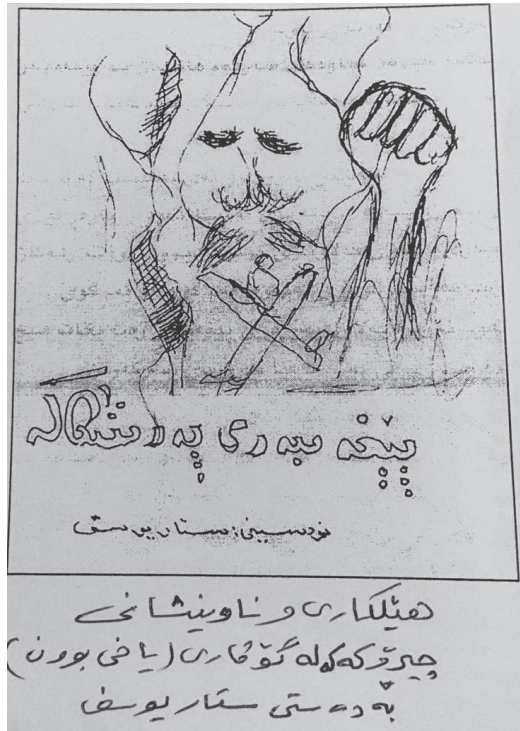 پێغەمبەری پەرستگالە
نوسینی: ستار یوسف
هێلکاری و ناونیشانی
چیرۆکەکە لە گۆڤاری (یاخی بوون)
بە دەستی ستار یوسف